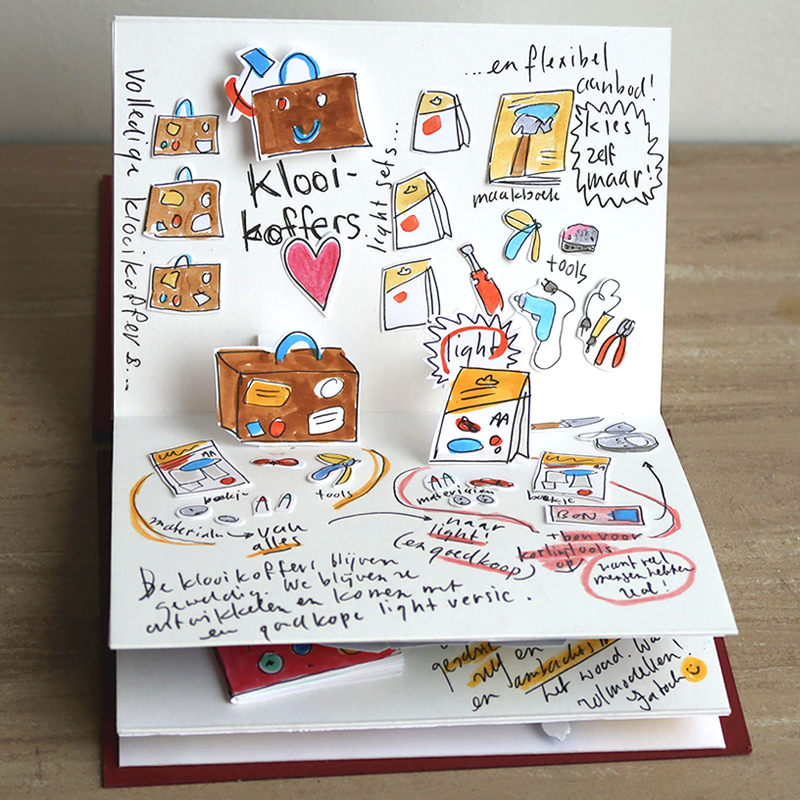 volledige klooikoffers...
klooi-
koffers
light sets...
...en flexibel
aanbod!
kies
zelf
maar!
maakboek
tools
light
boekje
tools
materialen
van
alles
materialen
boekje
BON
naar
light!
(en goedkoop)
+ bon voor
korting tools
op
want veel
mensen hebben
ze al!
De klooikoffers blijven
geweldig. We blijven ze
ontwikkelen en komen met
een goedkope light versie.
en
en ambachts
het woord. Wa
rolmodellen!
Ja toch